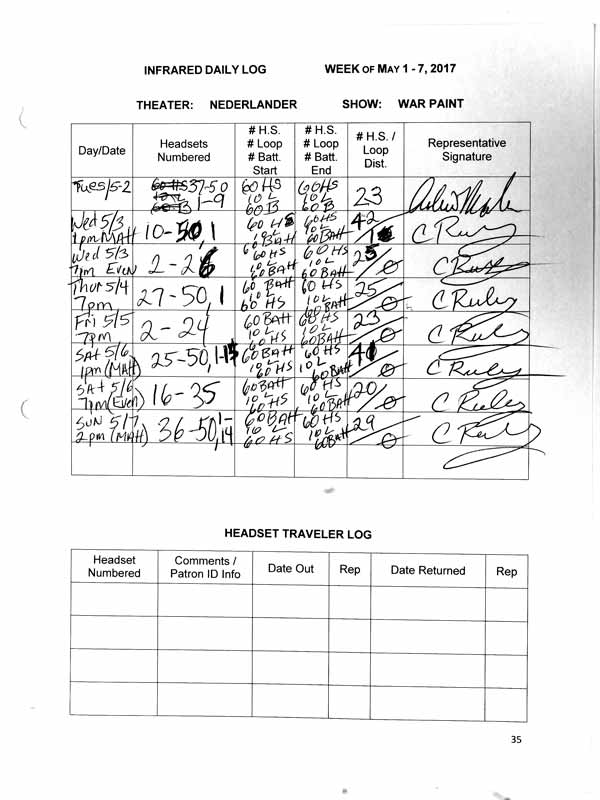 INFRARED DAILY LOG WEEK OF MAY 1 - 7, 2017
THEATER: NEDERLANDER SHOW: WAR PAINT
Day/Date Headsets Numbered # H.S. # Loop # Batt. Start # H.S. # Loop # Batt. End # H.S. / Loop Dist. Representative Signature
Tues 5/2 37-50 1-9 60 HS 10 L 60 B 60 HS 10 L 60 B 23
Wed 5/3 1pm MATT 10-50,1 60 HS 10 L 60 BAtt 60 HS 10 L 60 BAtt 42/1 C Ruly
Wed 5/3 7pm Even 2-26 60 HS 10 L 60 BAtt 60 HS 10 L 60 BAtt 25/0 C Ruly
Thur 5/4 7pm 27-50,1 60 BAtt 10 L 60 HS 60 HS 10 L 60 BAtt 25/0 C Ruly
Fri 5/5 7pm 2-24 60 BAtt 10 L 60 HS 60 HS 10 L 60 BAtt 23/0 C Ruly
SAt 5/6 1pm (MAtt) 25-50,1-15 60 BAtt 10 L 60 HS 60 HS 10 L 60 BAtt 41/0 C Ruly
SAt 5/6 7pm (Even) 16-35 60 BAtt 10 L 60 HS 60 HS 10 L 60 BAtt 20/0 C Ruly
SUN 5/7 2pm (MAtt) 36-50, 1-14 60 BAtt 10 L 60 HS 60 HS 10 L 60 BAtt 29/0 C Ruly
HEADSET TRAVELER LOG
Headset Numbered Comments / Patron ID Info Date Out Rep Date Returned Rep
35